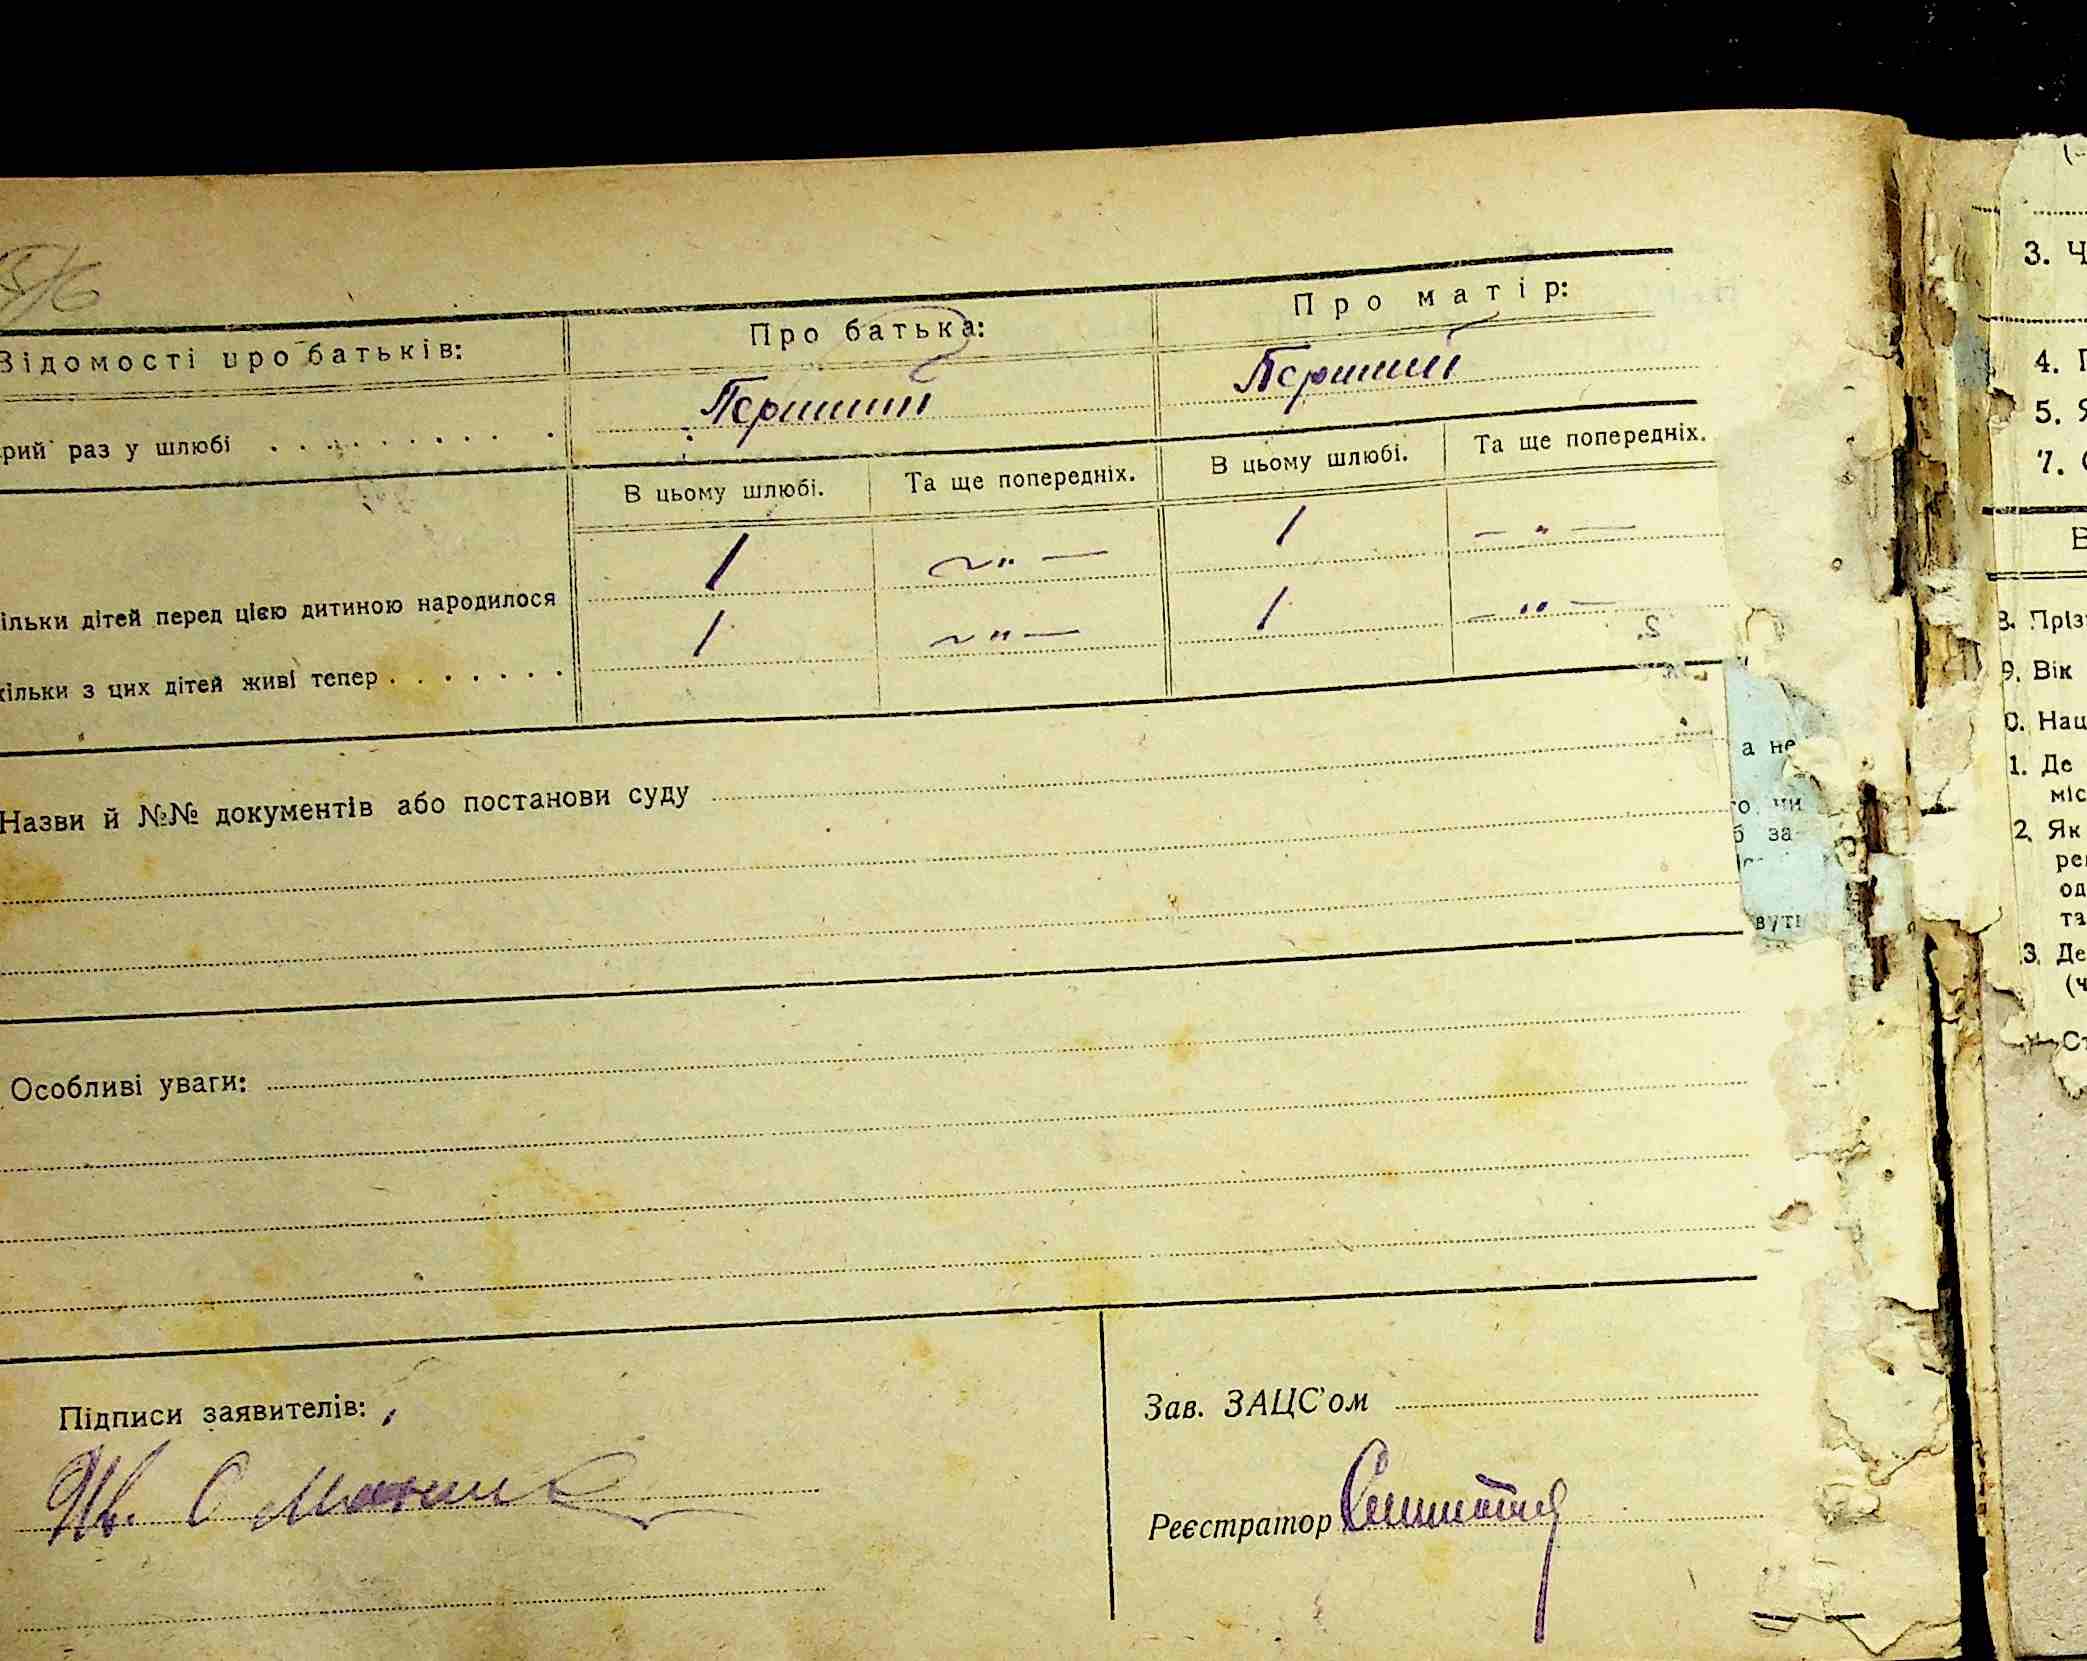 Відомості про батьків: Про батька: Про матір:
рий раз у шлюбі . . . . . . . . . Перший Перший
В цьому шлюбі. Та ще попередніх. В цьому шлюбі. Та ще попередніх.
ільки дітей перед цією дитиною народилося 1 — „ — 1 — „ —
кільки з цих дітей живі тепер . . . . . . . 1 — „ — 1 — „ —
Назви й №№ документів або постанови суду
а не
за-
Особливі уваги:
Підписи заявителів:
Зав. ЗАЦС'ом
Реєстратор
3. Ч
4. П
5. Я
7.
В
8. Пріз
9. Вік
0. Нац
1. Де
міс
2. Як
ре
од
та
3. Де
(ч
Ст